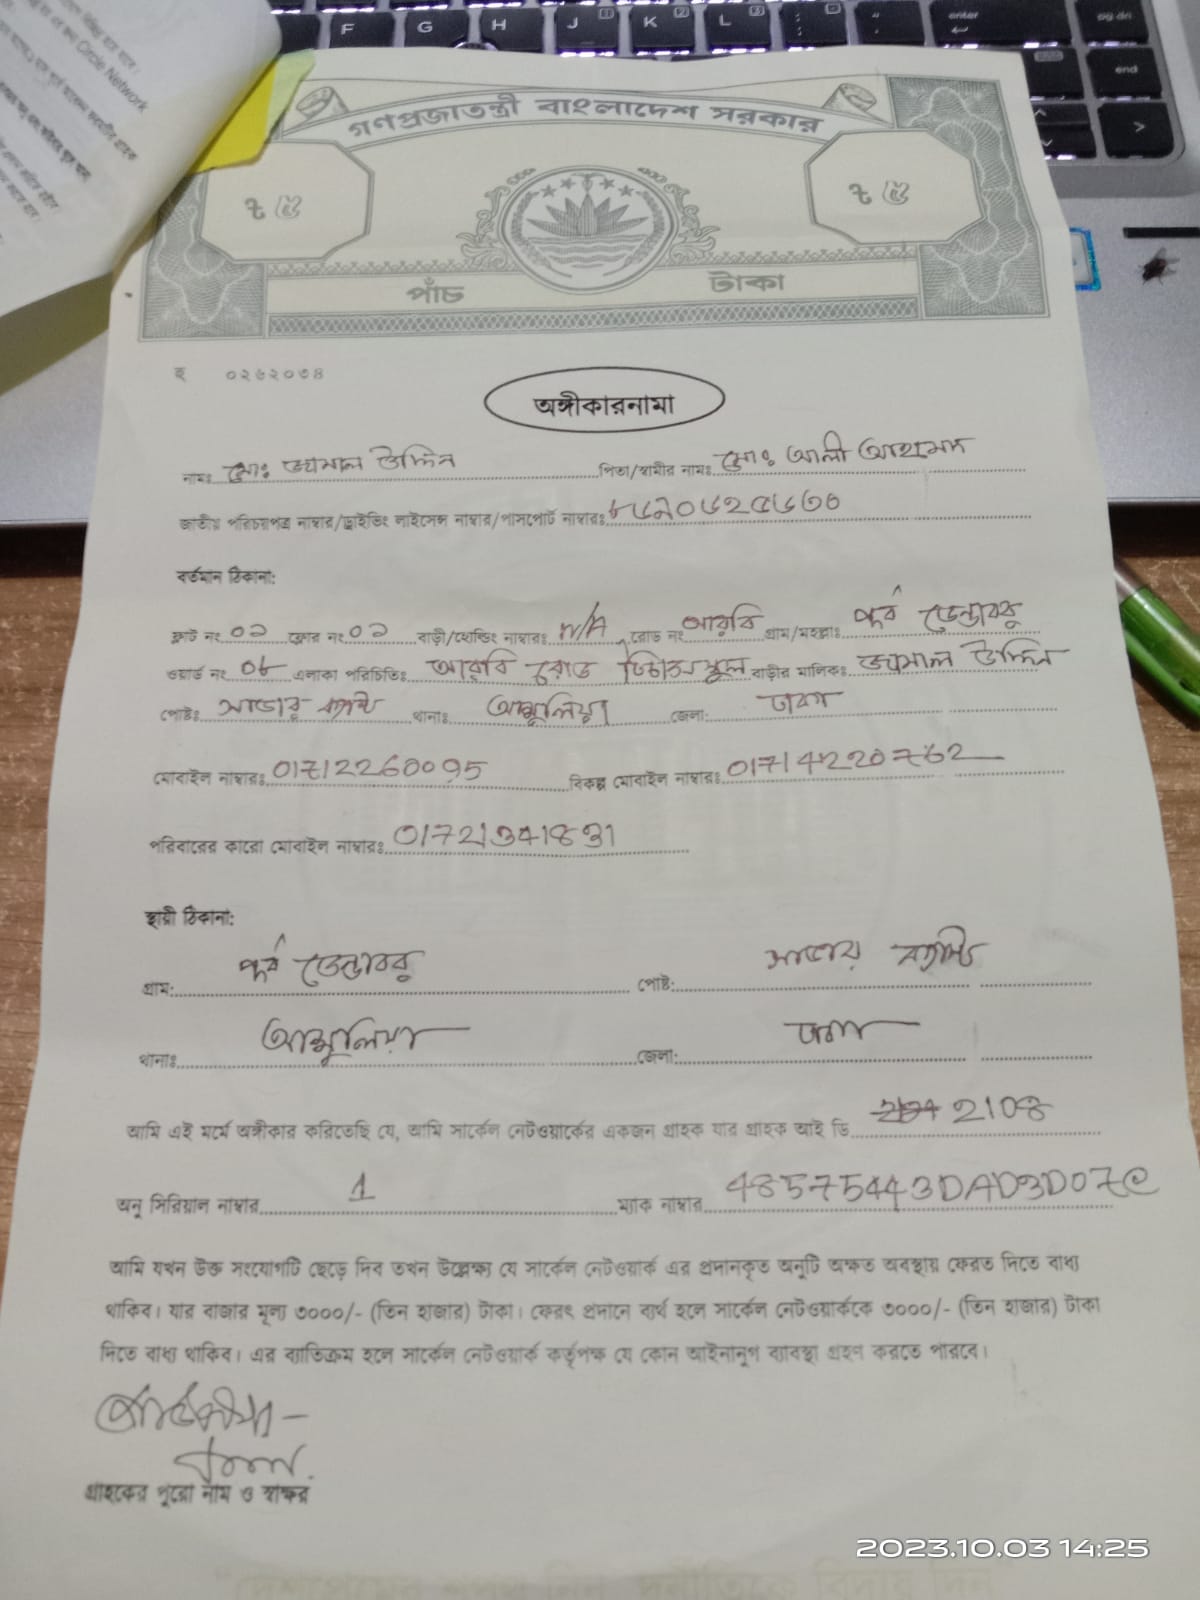 F G H J K L enter pg dn
end
Circle Network
গণপ্রজাতন্ত্রী বাংলাদেশ সরকার
৳ ৫ ৳ ৫
পাঁচ টাকা
হ ০২৬২০৩৪
অঙ্গীকারনামা
নামঃ মোঃ জামাল উদ্দিন পিতা/স্বামীর নামঃ মোঃ আলী আহমেদ
জাতীয় পরিচয়পত্র নাম্বার/ড্রাইভিং লাইসেন্স নাম্বার/পাসপোর্ট নাম্বারঃ
বর্তমান ঠিকানা:
ফ্লাট নং ০১ ফ্লোর নং ০১ বাড়ী/হোল্ডিং নাম্বারঃ N/A রোড নং আরবি গ্রাম/মহল্লাঃ পূর্ব ডেন্ডাবর
ওয়ার্ড নং ০৮ এলাকা পরিচিতিঃ আরবি রোড স্কুল বাড়ীর মালিকঃ জামাল উদ্দিন
পোষ্টঃ সাভার ক্যান্ট থানাঃ আশুলিয়া জেলা: ঢাকা
মোবাইল নাম্বারঃ 01712260095 বিকল্প মোবাইল নাম্বারঃ 01714220762
পরিবারের কারো মোবাইল নাম্বারঃ 01721341831
স্থায়ী ঠিকানা:
গ্রাম: পূর্ব ডেন্ডাবর পোষ্ট: সাভার ক্যান্ট
থানাঃ আশুলিয়া জেলা: ঢাকা
আমি এই মর্মে অঙ্গীকার করিতেছি যে, আমি সার্কেল নেটওয়ার্কের একজন গ্রাহক যার গ্রাহক আই ডি 2108
অনু সিরিয়াল নাম্বার 1 ম্যাক নাম্বার 48575443DAD3D07C
আমি যখন উক্ত সংযোগটি ছেড়ে দিব তখন উল্লেক্ষ্য যে সার্কেল নেটওয়ার্ক এর প্রদানকৃত অনুটি অক্ষত অবস্থায় ফেরত দিতে বাধ্য
থাকিব। যার বাজার মূল্য ৩০০০/- (তিন হাজার) টাকা। ফেরৎ প্রদানে ব্যর্থ হলে সার্কেল নেটওয়ার্ককে ৩০০০/- (তিন হাজার) টাকা
দিতে বাধ্য থাকিব। এর ব্যাতিক্রম হলে সার্কেল নেটওয়ার্ক কর্তৃপক্ষ যে কোন আইনানুগ ব্যাবস্থা গ্রহণ করতে পারবে।
গ্রাহকের পুরো নাম ও স্বাক্ষর
2023.10.03 14:25